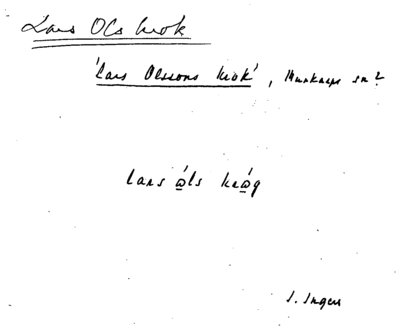 Lars Ols krok
'Lars Olssons krok', Munkarps sn?
lars å̱ls krå̱g
S. Ingers